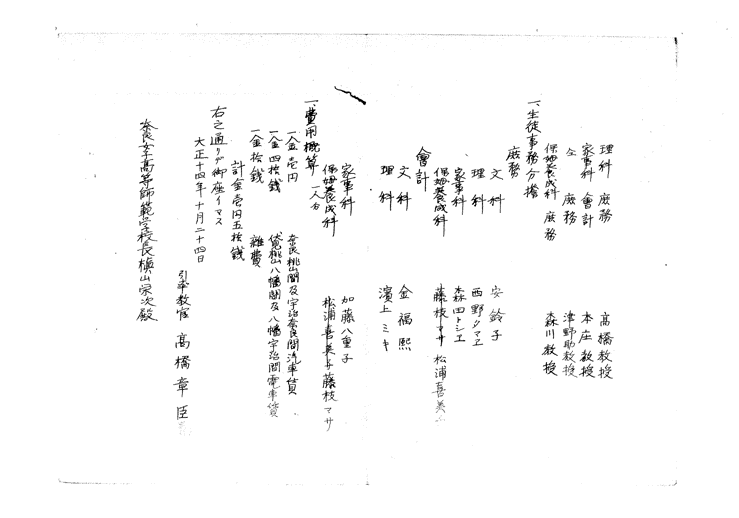 理科 庶務 高橋教授
家事科 會計 本庄教授
仝 庶務 津野助教授
保姆養成科 庶務 森川教授
一、生徒事務分擔
庶務
文科 安鈴子
理科 西野クマヱ
家事科 森田トシヱ
保姆養成科 藤枝マサ 松浦喜美子
會計
文科 金福熙
理科 濱上ミキ
家事科 加藤八重子
保姆養成科 松浦喜美子藤枝マサ
一、費用概算 一人分
一金壱円 奈良桃山間及宇治奈良間汽車賃
一金四拾銭 伏見桃山八幡間及八幡宇治間電車賃
一金拾銭 雑費
計金壱円五拾銭
右之通リデ御座イマス
大正十四年十月二十四日
引率教官 高橋章臣
奈良女子高等師範学校長槇山栄次殿